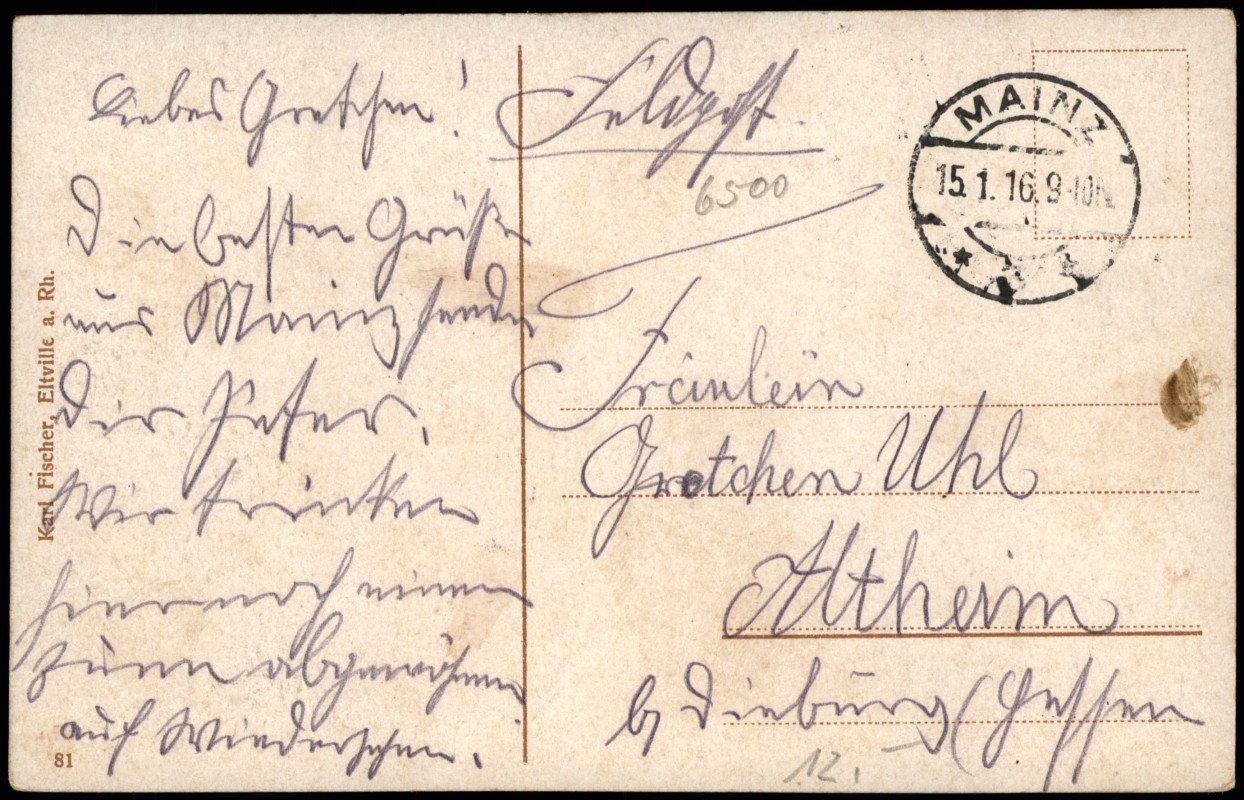 Liebes Gretchen!
Die besten Grüße
aus Mainz sendet
Dir Peter.
Wir trinken
hier noch einen
zum abgewöhnen
auf Wiedersehen.
Feldpost
6500
MAINZ
15.1.16.9-10N
Fräulein
Gretchen Uhl
Altheim
b/ Dieburg (Hessen
12.
Karl Fischer, Eltville a. Rh.
81